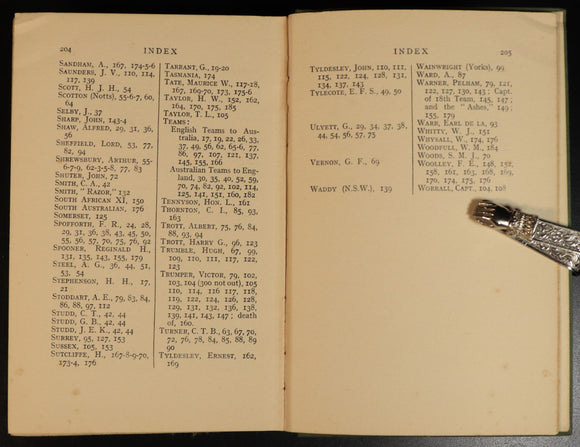 204 INDEX
SANDHAM, A., 167, 174-5-6
SAUNDERS, J. V., 110, 114,
117, 139
SCOTT, H. J. H., 54
SCOTTON (Notts), 55-6-7, 60,
64
SELBY, J., 37
SHARP, JOHN, 143-4
SHAW, ALFRED, 29, 31, 36,
56
SHEFFIELD, LORD, 53, 77,
82, 94
SHREWSBURY, ARTHUR, 55-
6-7-9, 62-3-5-8, 77, 83
SHUTER, JOHN, 72
SMITH, C. A., 42
SMITH, "RAZOR," 132
SOUTH AFRICAN XI, 150
SOUTH AUSTRALIAN, 176
SOMERSET, 125
SPOFFORTH, F. R., 24, 28,
29, 31, 36, 38, 43, 45, 50,
55, 56, 57, 70, 75, 76, 92
SPOONER, REGINALD H.,
131, 135, 143, 155, 179
STEEL, A. G., 36, 44, 51,
53, 54
STEPHENSON, H. H., 17,
21
STODDART, A. E., 79, 83, 84,
86, 88, 97, 112
STUDD, C. T., 42, 44
STUDD, G. B., 42, 44
STUDD, J. E. K., 42, 44
SURREY, 95, 127, 153
SUSSEX, 105, 153
SUTCLIFFE, H., 167-8-9-70,
173-4, 176
TARRANT, G., 19-20
TASMANIA, 174
TATE, MAURICE W., 117-18,
167, 169-70, 173, 175-6
TAYLOR, H. W., 152, 162,
164, 170, 175, 185
TAYLOR, T. L., 105
TEAMS:
English Teams to Aus-
tralia, 17, 19, 22, 26, 33,
37, 49, 56, 62, 65-6, 77,
86, 97, 107, 121, 137,
145, 155, 166
Australian Teams to Eng-
land, 30, 35, 40, 52, 59,
70, 74, 82, 92, 102, 114,
125, 141, 151, 160, 182
TENNYSON, HON. L., 161
THORNTON, C. I., 85, 93,
163
TROTT, ALBERT, 75, 76, 84,
88, 93, 94
TROTT, HARRY G., 96, 123
TRUMBLE, HUGH, 67, 99,
109, 110, 111, 117, 122,
123
TRUMPER, VICTOR, 79, 102,
103, 104 (300 not out), 105
110, 114, 116, 117, 118,
119, 122, 124, 126, 128,
129, 131, 132, 136, 138,
139, 141, 143, 147; death
of, 160.
TURNER, C. T. B., 63, 67, 70,
72, 76, 78, 84, 85, 88, 89
90
TYLDESLEY, ERNEST, 162,
169
INDEX 205
TYLDESLEY, JOHN, 110, 111,
115, 122, 124, 128, 131,
134, 137, 143
TYLECOTE, E. F. S., 49, 50
ULYETT, G., 29, 34, 37, 38,
44, 54, 56, 57, 75
VERNON, G. F., 69
WADDY (N.S.W.), 139
WAINWRIGHT (Yorks), 99
WARD, A., 87
WARNER, PELHAM, 79, 121,
122, 127, 130, 143; Capt.
of 18th Team, 145, 147;
and the "Ashes," 149;
155, 179
WARR, EARL DE LA, 93
WHITTY, W. J., 151
WHYSALL, W., 174, 176
WOODFULL, W. M., 184
WOODS, S. M. J., 70
WOOLLEY, F. E., 148, 152,
158, 161, 163, 168, 169,
170, 174, 175, 176
WORRALL, CAPT., 104, 108